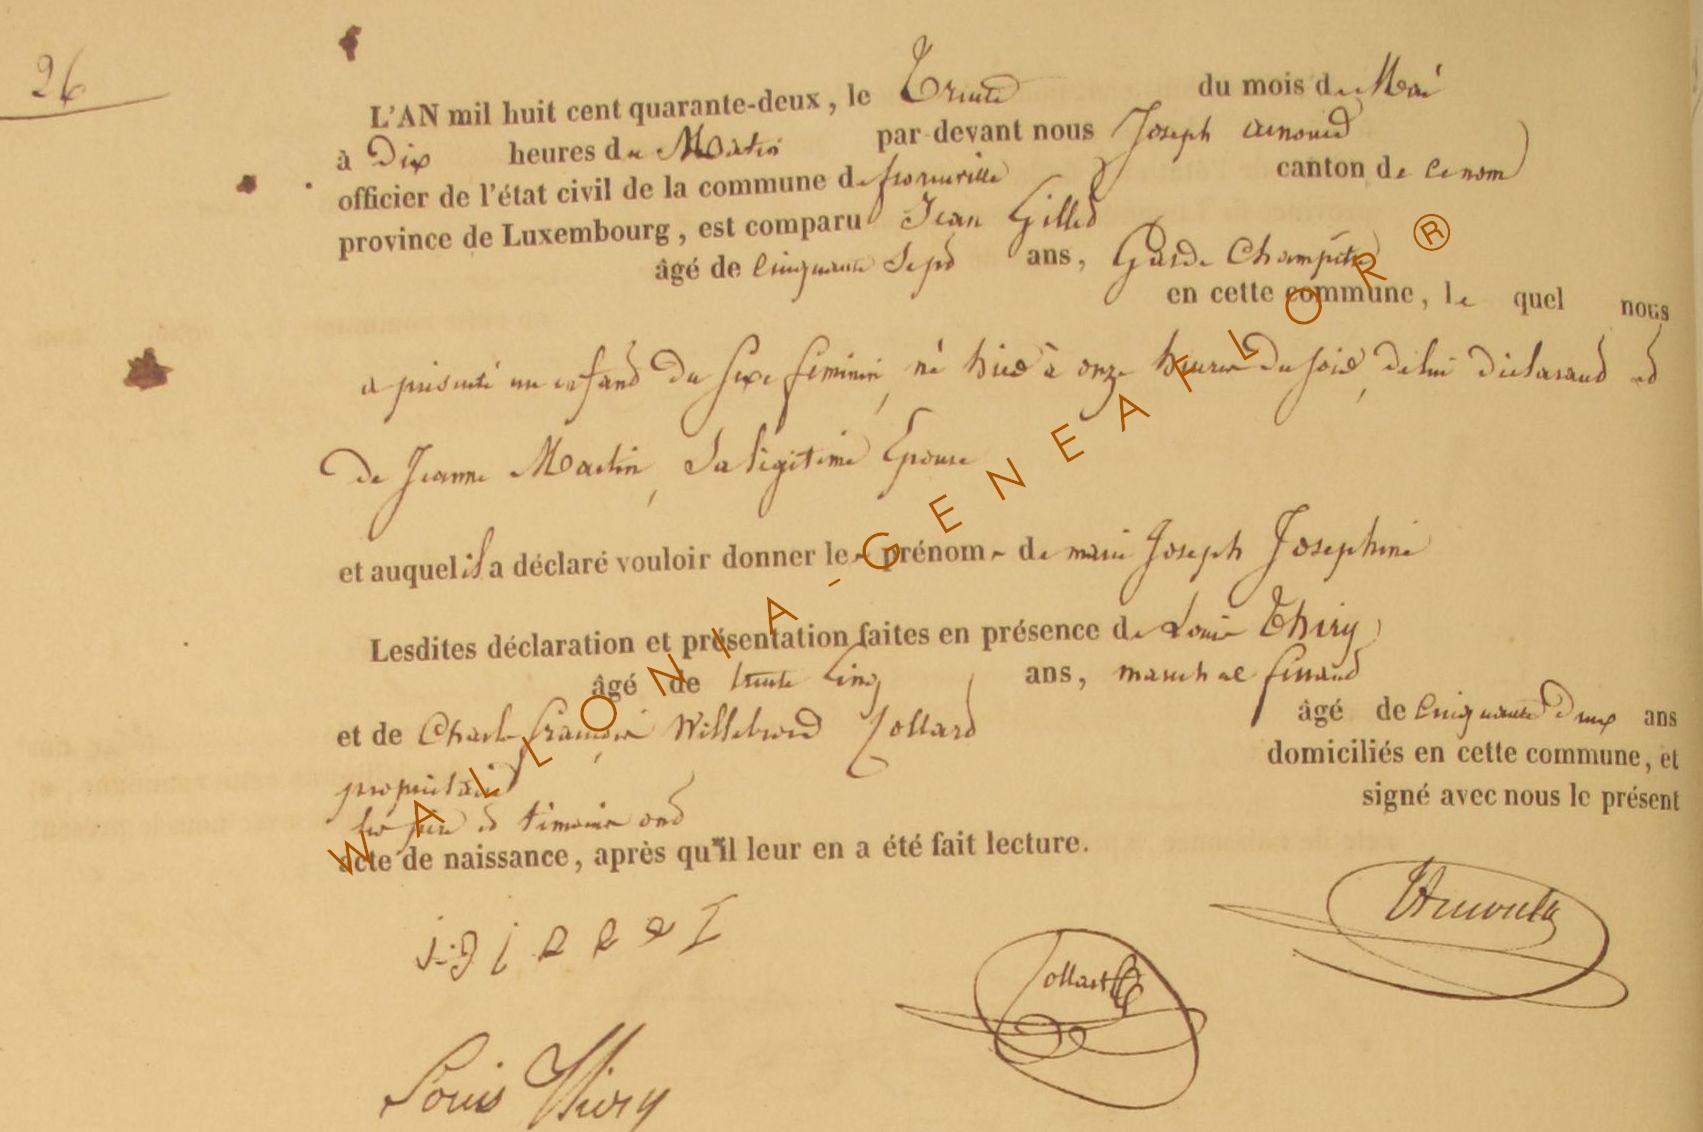 26
L'AN mil huit cent quarante-deux, le Trente du mois de Mai
à Dix heures du Matin par devant nous Joseph Arnould
officier de l'état civil de la commune de canton de ce nom
province de Luxembourg, est comparu Jean Gilles
âgé de Cinquante Sept ans, Garde Champêtre
en cette commune, le quel nous
a présenté un enfant du sexe féminin, né hier à onze heures du soir, de lui déclarant et
de Jeanne Martin, Sa légitime Epouse
et auquel il a déclaré vouloir donner les prénoms de marie Joseph Josephine
Lesdites déclaration et présentation faites en présence de Louis Thiry
âgé de trente Cinq ans, marechal ferrand
et de Charles François Willebrord Collard âgé de Cinquante deux ans
propriétaire domiciliés en cette commune, et
les père et témoins ont signé avec nous le présent
acte de naissance, après qu'il leur en a été fait lecture.
J. Arnould
Collart
Louis Thiry
WALLONIA-GENEAFLOR®